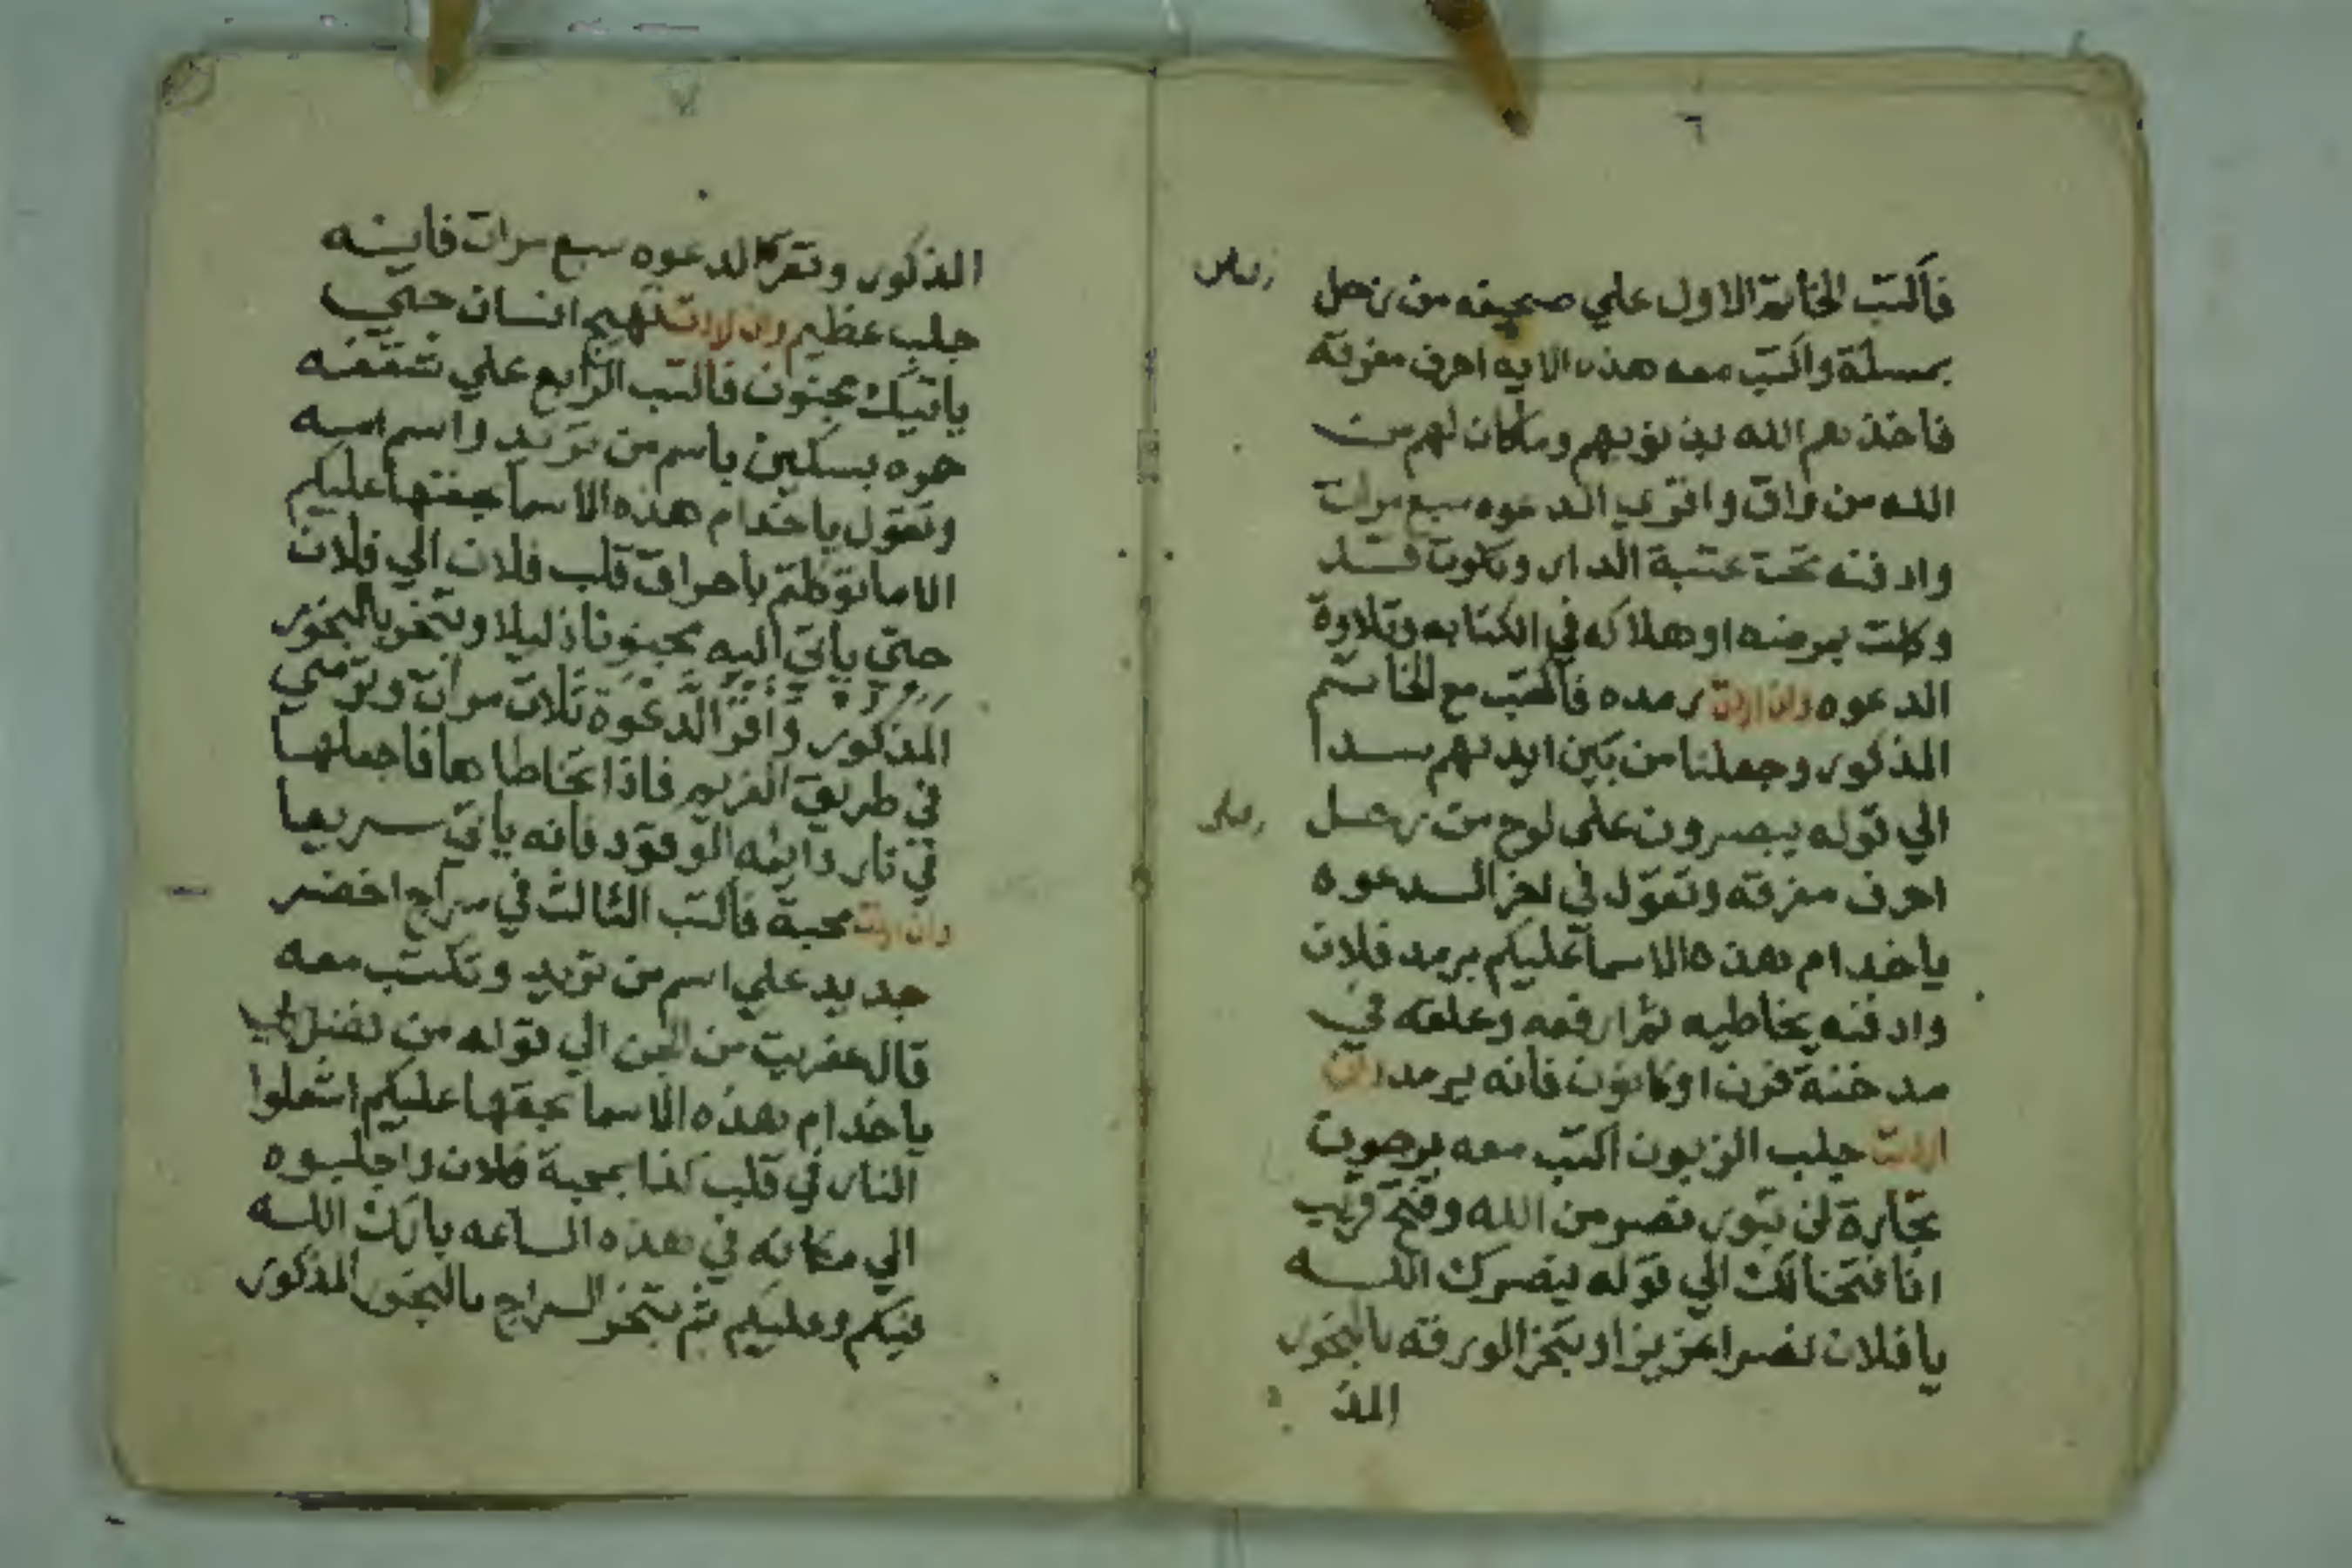 ٦
فاكتب الخاتم الاول علي صحيفه من زحل
رصاص
بمسلة واكتب معه هذه الايه احرف مفرقة
فاخذهم الله بذنوبهم وماكان لهم من
الله من واق واقري الدعوه سبع مرات
وادفنه تحت عتبة الدار وتكون قد
وكلت بمرضه او هلاكه في الكتابه وتلاوة
الدعوه وان اردت رمده فاكتب مع الخاتم
المذكور وجعلنا من بين ايديهم سدا
الي قوله يبصرون علي لوح من زحل
احرف مفرقه وتقول في اخر الدعوه
ياخدام هذه الاسما عليكم برمد فلان
وادفنه يخاطيه ثم ارفعه وعلقه في
مدخنة فرن او كانون فانه يرمد وان
اردت جلب الزبون اكتب معه يرجون
تجارة لن تبور نصر من الله وفتح قريب
انا فتحنا لك الي قوله ينصرك الله
يا فلان نصرا عزيزا وبخر الورقه بالبخور
المذ
٧
المذكور وتقرا الدعوه سبع مرات فاينه
جلب عظيم وان اردت تهيج انسان حتي
ياتيك مجنون فاكتب الرابع علي شقفه
حره بسكين باسم من تريد واسم امه
وتقول ياخدام هذه الاسما بحقها عليكم
الاما توكلتم باحراق قلب فلان الي فلان
حتي ياتي اليه مجنونا ذليلا وتبخر بالبخور
المذكور واقرا الدعوة ثلاث مرات وترمي
في طريق الغريم فاذا تخاطاها فاجعلها
في نار دايمه الوقود فانه ياتي سريعا
وان اردت محبة فاكتب الثالث في سراج اخضر
جديد علي اسم من تريد وتكتب معه
قال عفريت من الجن الي قوله من فضل ربي
ياخدام هذه الاسما بحقها عليكم اشعلوا
النار في قلب كذا بمحبة فلان واجلبوه
الي مكانه في هذه الساعه بارك الله
فيكم وعليكم ثم تبخر السراج بالبخور المذكور